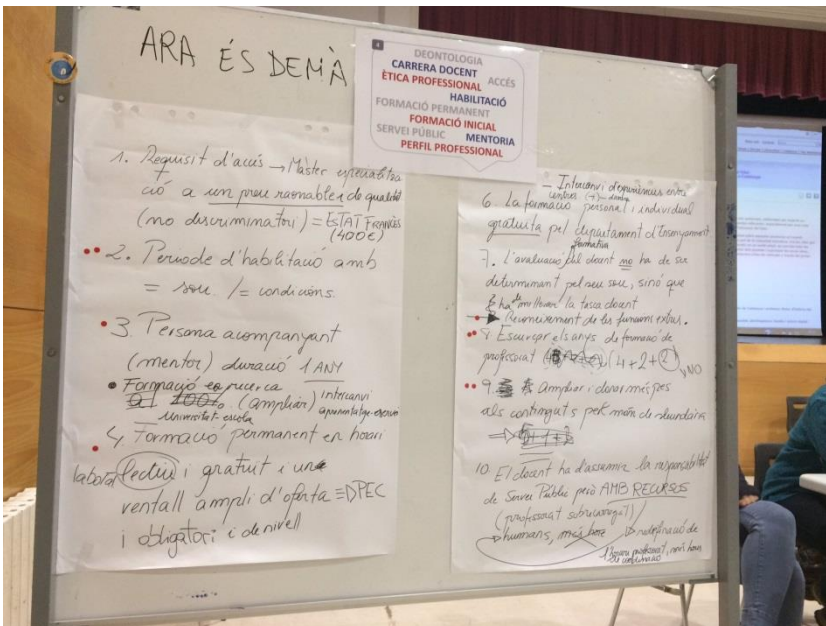 ARA ÉS DEMÀ
4
DEONTOLOGIA
CARRERA DOCENT
ÈTICA PROFESSIONAL ACCÉS
HABILITACIÓ
FORMACIÓ PERMANENT
FORMACIÓ INICIAL
SERVEI PÚBLIC MENTORIA
PERFIL PROFESSIONAL
1. Requisit d'accés → Màster especialitza
ció a un preu raonable x de qualitat
(no discriminatori) = ESTAT FRANCÈS
(400€)
2. Període d'habilitació amb
= sou / = condicions.
3. Persona acompanyant
(mentor) duració 1 ANY
Formació en recerca
(ampliar) intercanvi
universitat-escola
4. Formació permanent en horari
laboral (lectiu) i gratuït i una
ventall ampli d'oferta = DPEC
i obligatori i de nivell
- Intercanvi d'experiències entre
centres
6. La formació personal i individual
gratuïta pel departament d'Ensenyament
formativa
7. L'avaluació pel docent no ha de ser
determinant pel seu sou, sinó que
ha de millorar la tasca docent
Reconeixement de les funcions extres.
8. Escurçar els anys de formació de
professorat (4+2+2) NO
9. Ampliar i donar més pes
als continguts pel món de secundària
10. El docent ha d'assumir la responsabilitat
de Servei Públic però AMB RECURSOS
(professorat sobrecarregat)
humans, més hores redefinició de
professorat, més hores
de coordinació